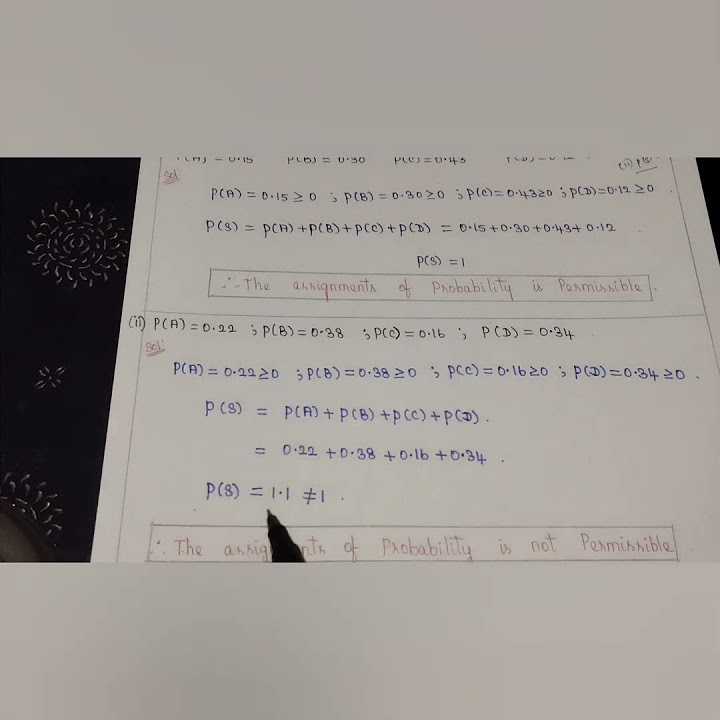 P(A) = 0.15 P(B) = 0.30 P(C) = 0.43
(ii) P(S)
Sol
P(A) = 0.15 ≥ 0 ; P(B) = 0.30 ≥ 0 ; P(C) = 0.43 ≥ 0 ; P(D) = 0.12 ≥ 0
P(S) = P(A) + P(B) + P(C) + P(D) = 0.15 + 0.30 + 0.43 + 0.12
P(S) = 1
∴ The assignments of Probability is Permissible.
(ii) P(A) = 0.22 ; P(B) = 0.38 ; P(C) = 0.16 ; P(D) = 0.34
Sol:
P(A) = 0.22 ≥ 0 ; P(B) = 0.38 ≥ 0 ; P(C) = 0.16 ≥ 0 ; P(D) = 0.34 ≥ 0 .
P(S) = P(A) + P(B) + P(C) + P(D) .
= 0.22 + 0.38 + 0.16 + 0.34 .
P(S) = 1.1 ≠ 1 .
∴ The of Probability is not Permissible